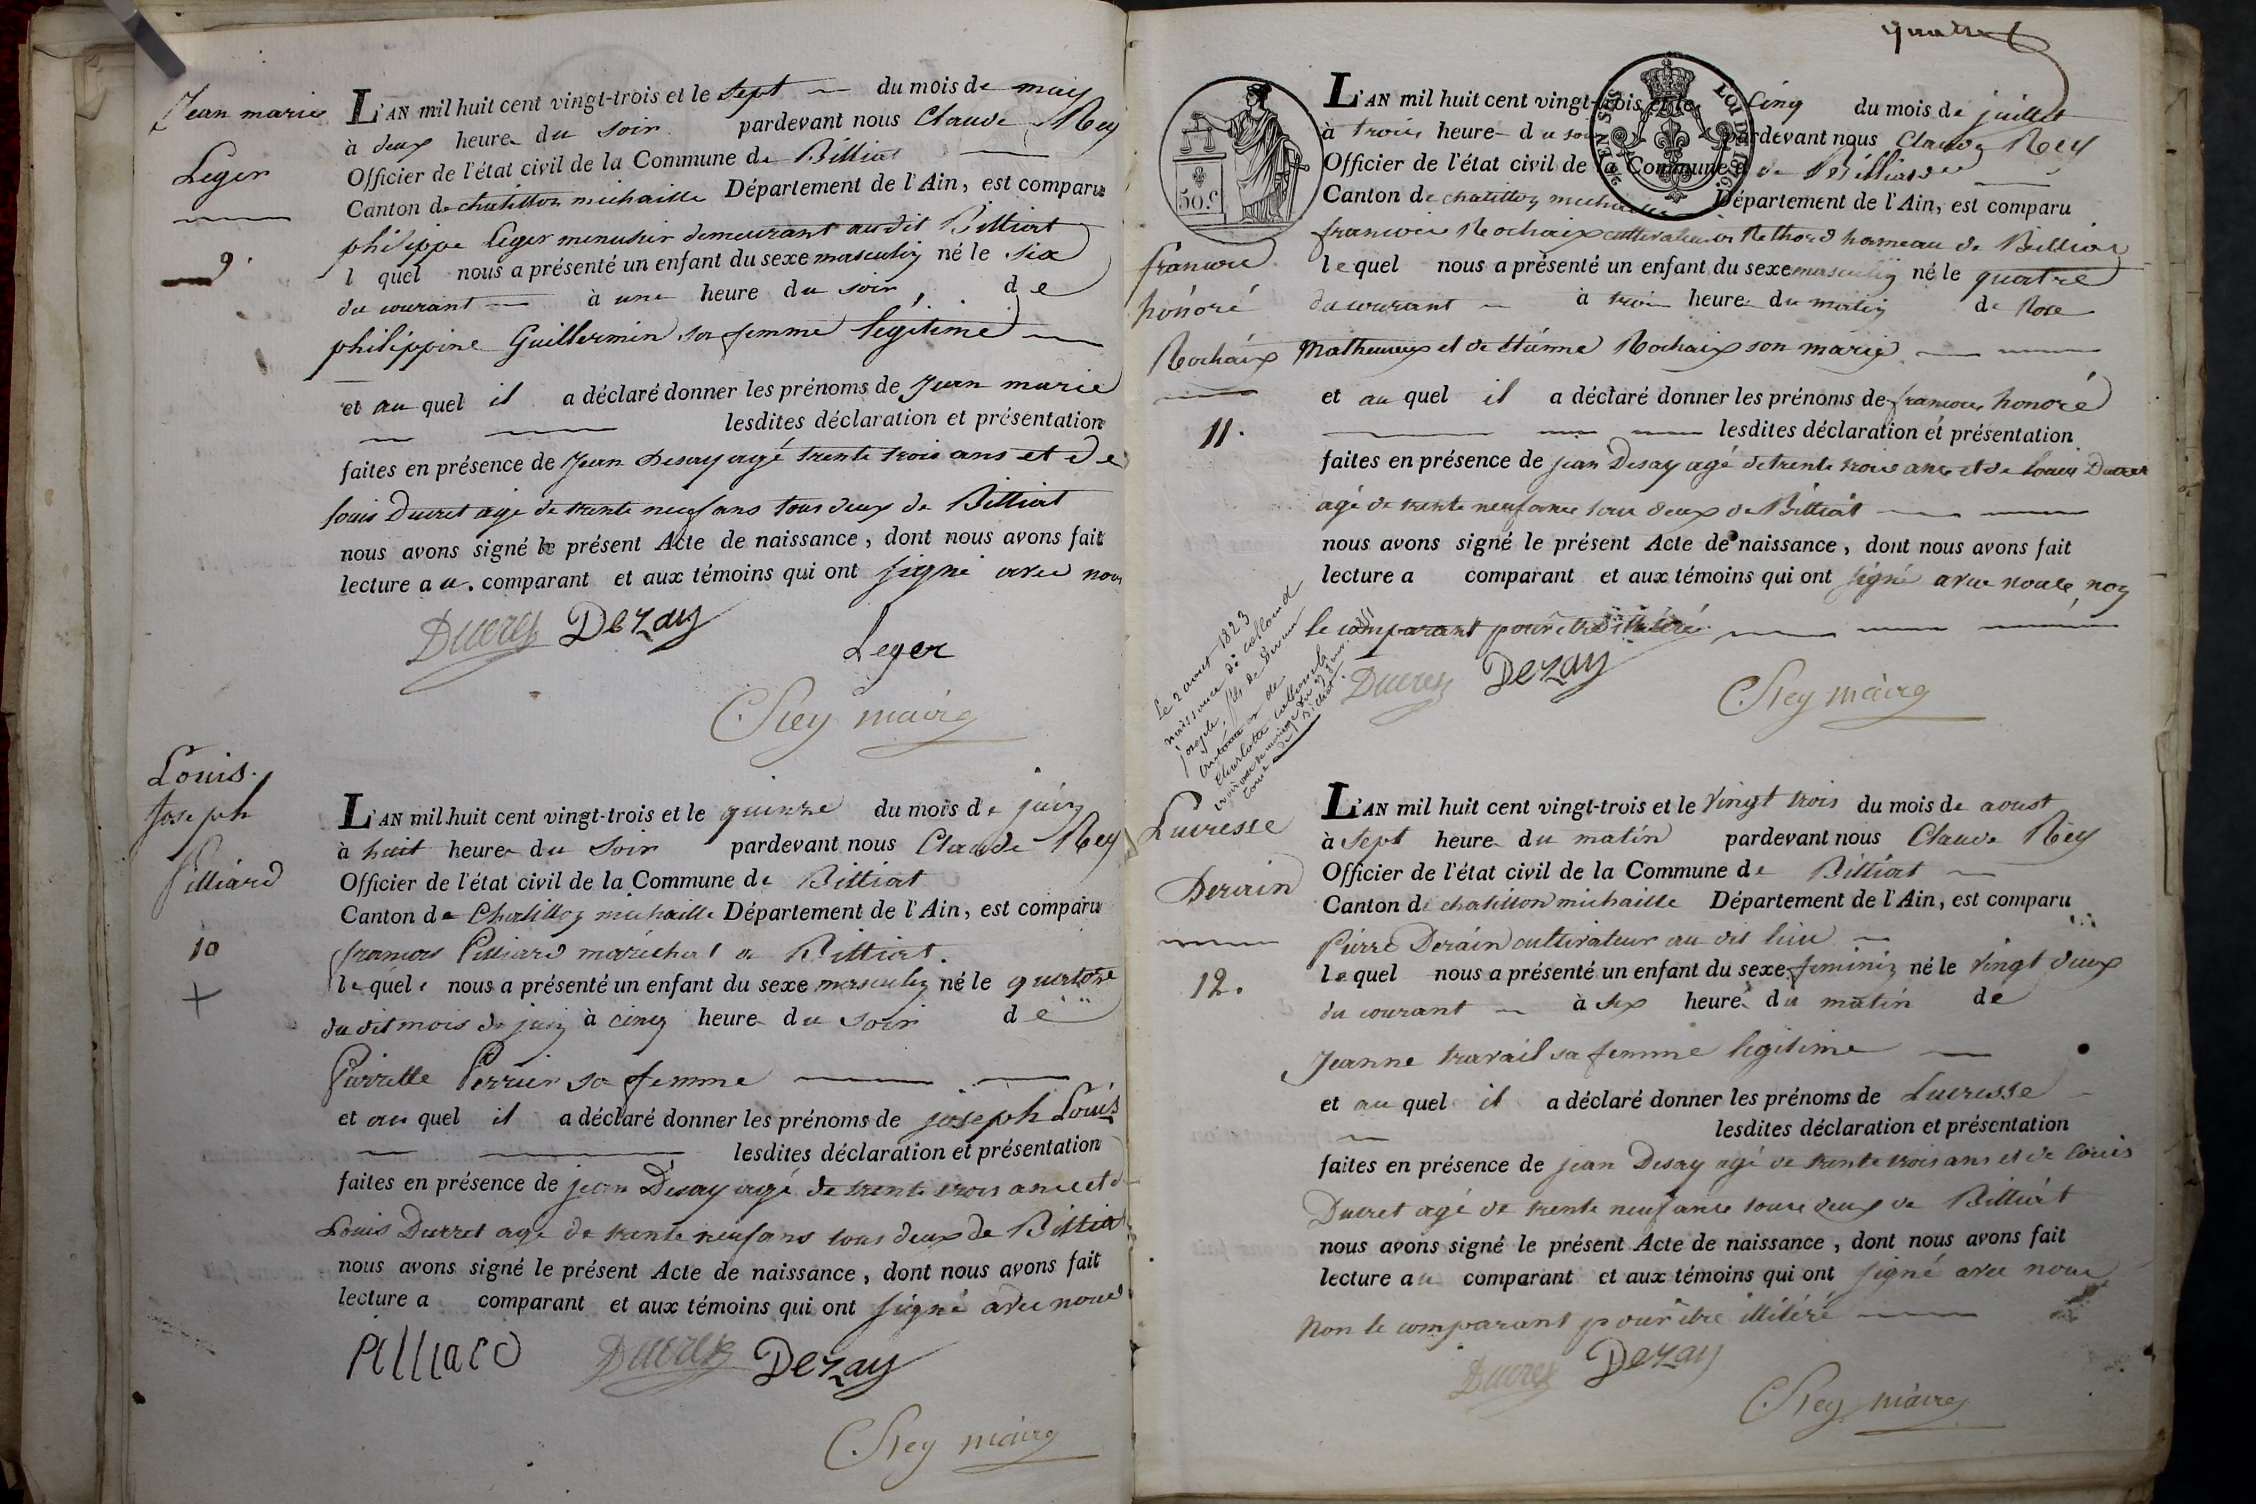 Jean marie
Leger
9.
L'AN mil huit cent vingt-trois et le sept du mois de may
à deux heure du soir pardevant nous Claude Rey
Officier de l'état civil de la Commune de Billiat
Canton de chatillon michaille Département de l'Ain, est comparu
philippe Leger menusier demeurant audit Billiat
l quel nous a présenté un enfant du sexe masculin né le six
du courant à une heure du soir, de
philippine Guillermin sa femme legitime
et au quel il a déclaré donner les prénoms de Jean marie
lesdites déclaration et présentation
faites en présence de Jean Desay agé trente trois ans et de
Louis Ducret agé de trente neuf ans tous deux de Billiat
nous avons signé le présent Acte de naissance, dont nous avons fait
lecture a u. comparant et aux témoins qui ont signé avec nous
Ducret Dezay
Leger
C Rey maire
Louis.
Joseph
Pilliard
10
L'AN mil huit cent vingt-trois et le quinze du mois de juin
à huit heure du soir pardevant nous Claude Rey
Officier de l'état civil de la Commune de Billiat
Canton de Chatillon michaille Département de l'Ain, est comparu
francois Pilliard maréchal a Billiat.
le quel nous a présenté un enfant du sexe masculin né le quatorze
du dit mois de juin à cinq heure du soir de
Pierrette Perrier sa femme
et au quel il a déclaré donner les prénoms de joseph Louis
lesdites déclaration et présentation
faites en présence de jean Desay agé de trente trois ans et d
Louis Ducret age de trente neuf ans tous deux de Billiat
nous avons signé le présent Acte de naissance, dont nous avons fait
lecture a comparant et aux témoins qui ont signé avec nous
Pilliard Ducret Dezay
C Rey maire
quatre
50 c.
LOI DE 1816.
francois
honoré
Rochaix
11.
L'AN mil huit cent vingt-trois et le cinq du mois de juillet
à trois heure du soir pardevant nous Claude Rey
Officier de l'état civil de la Commune de Billiat
Canton de chatillon michaille Département de l'Ain, est comparu
francois Rochaix cultivateur hameau de Billiat
le quel nous a présenté un enfant du sexe masculin né le quatre
du courant à trois heure du matin de Rose
et de Etienne Rochaix son marie
et au quel il a déclaré donner les prénoms de francois honoré
lesdites déclaration et présentation
faites en présence de jean Desay agé de trente trois ans et de Louis Ducret
agé de trente neuf ans tous deux de Billiat
nous avons signé le présent Acte de naissance, dont nous avons fait
lecture a comparant et aux témoins qui ont signé avec nous, non
le comparant pour être illitéré.
Ducret Dezay
C Rey maire
Le 2 aout 1823
naissance de
joseph, fils de
de
Charlotte
Lucresse
Derain
12.
L'AN mil huit cent vingt-trois et le vingt trois du mois de aoust
à sept heure du matin pardevant nous Claude Rey
Officier de l'état civil de la Commune de Billiat
Canton de chatillon michaille Département de l'Ain, est comparu
Pierre Derain cultivateur au dit lieu
le quel nous a présenté un enfant du sexe feminin né le vingt deux
du courant à six heure du matin de
Jeanne travail sa femme legitime
et au quel il a déclaré donner les prénoms de Lucresse
lesdites déclaration et présentation
faites en présence de jean Desay agé de trente trois ans et de Louis
Ducret agé de trente neuf ans tous deux de Billiat
nous avons signé le présent Acte de naissance, dont nous avons fait
lecture au comparant et aux témoins qui ont signé avec nous
Non le comparant pour être illitéré
Ducret Dezay
C Rey maire